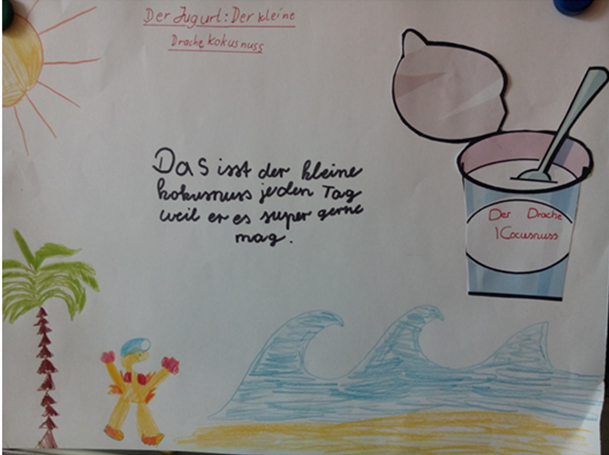 Der Jugurt: Der kleine
Drache Kokusnuss
Das isst der kleine
kokusnuss jeden Tag
weil er es super gerne
mag.
Der Drache
Kocusnuss